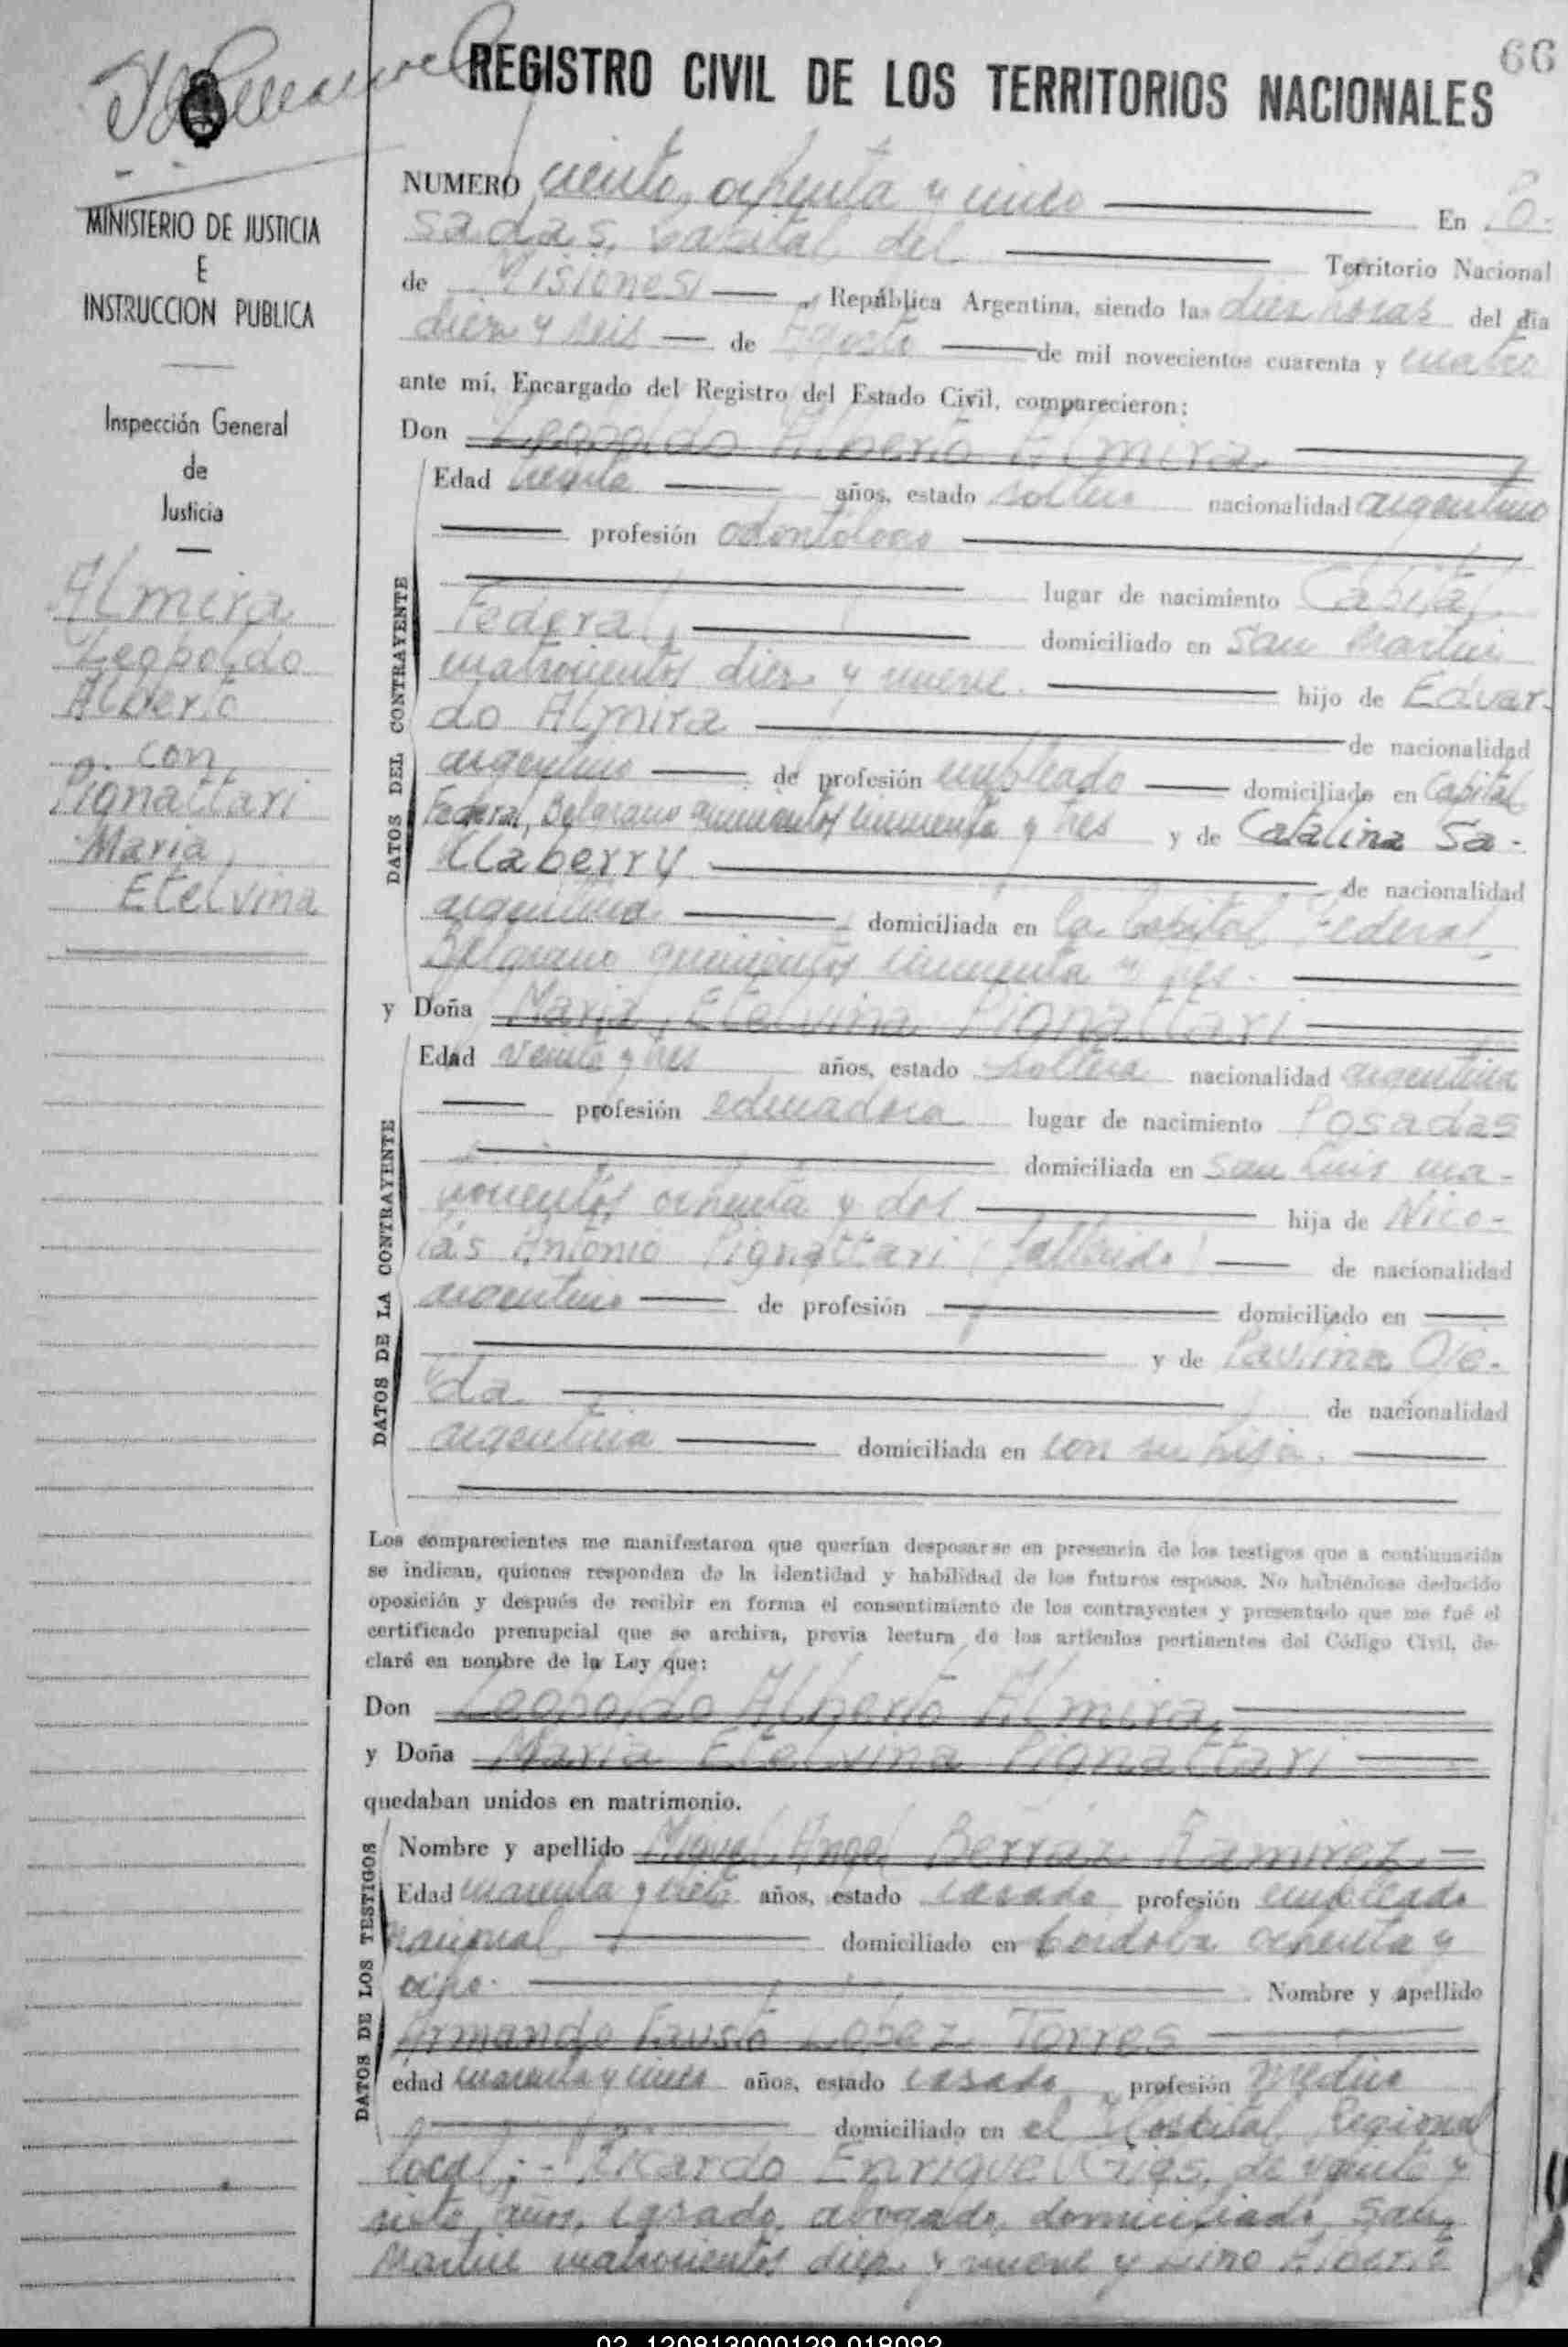 66
REGISTRO CIVIL DE LOS TERRITORIOS NACIONALES
MINISTERIO DE JUSTICIA
E
INSTRUCCION PUBLICA
Inspección General
de
Justicia
Almira
Leopoldo
Alberto
con
Pignattari
Maria
Etelvina
NUMERO ciento ochenta y cinco En Po-
sadas, Capital del Territorio Nacional
de Misiones, República Argentina, siendo las diez horas del día
diez y seis de Agosto de mil novecientos cuarenta y cuatro
ante mí, Encargado del Registro del Estado Civil, comparecieron:
Don Leopoldo Alberto Almira
Edad treinta años, estado soltero nacionalidad argentino
profesión odontólogo
lugar de nacimiento Capital
Federal, domiciliado en San Martin
cuatrocientos diez y nueve. hijo de Eduar-
do Almira de nacionalidad
argentino de profesión empleado domiciliado en Capital
Federal, Belgrano quinientos cincuenta y tres y de Catalina Sa-
llaberry de nacionalidad
argentina domiciliada en la Capital Federal,
Belgrano quinientos cincuenta y tres.
y Doña Maria Etelvina Pignattari
Edad veinte y tres años, estado soltera nacionalidad argentina
profesión educadora lugar de nacimiento Posadas
domiciliada en San Luis cua-
trocientos ochenta y dos hija de Nico-
lás Antonio Pignattari (fallecido) de nacionalidad
argentino de profesión domiciliado en
y de Paulina Oje-
da de nacionalidad
argentina domiciliada en con su hija.
Los comparecientes me manifestaron que querían desposarse en presencia de los testigos que a continuación
se indican, quienes responden de la identidad y habilidad de los futuros esposos. No habiéndose deducido
oposición y después de recibir en forma el consentimiento de los contrayentes y presentado que me fué el
certificado prenupcial que se archiva, previa lectura de los artículos pertinentes del Código Civil, de-
claré en nombre de la Ley que:
Don Leopoldo Alberto Almira,
y Doña Maria Etelvina Pignattari
quedaban unidos en matrimonio.
Nombre y apellido Miguel Angel Berraz Ramirez
Edad cuarenta y siete años, estado casado profesión empleado
nacional domiciliado en Córdoba ochenta y
ocho. Nombre y apellido
Armando Fausto López Torres
edad cuarenta y cinco años, estado casado, profesión médico
domiciliado en el Hospital Regional
local;- Ricardo Enrique de veinte y
siete años, casado, abogado, domiciliado San
Martin cuatrocientos diez y nueve y Lino Alberto
DATOS DEL CONTRAYENTE
DATOS DE LA CONTRAYENTE
DATOS DE LOS TESTIGOS
02 120813000129 018092